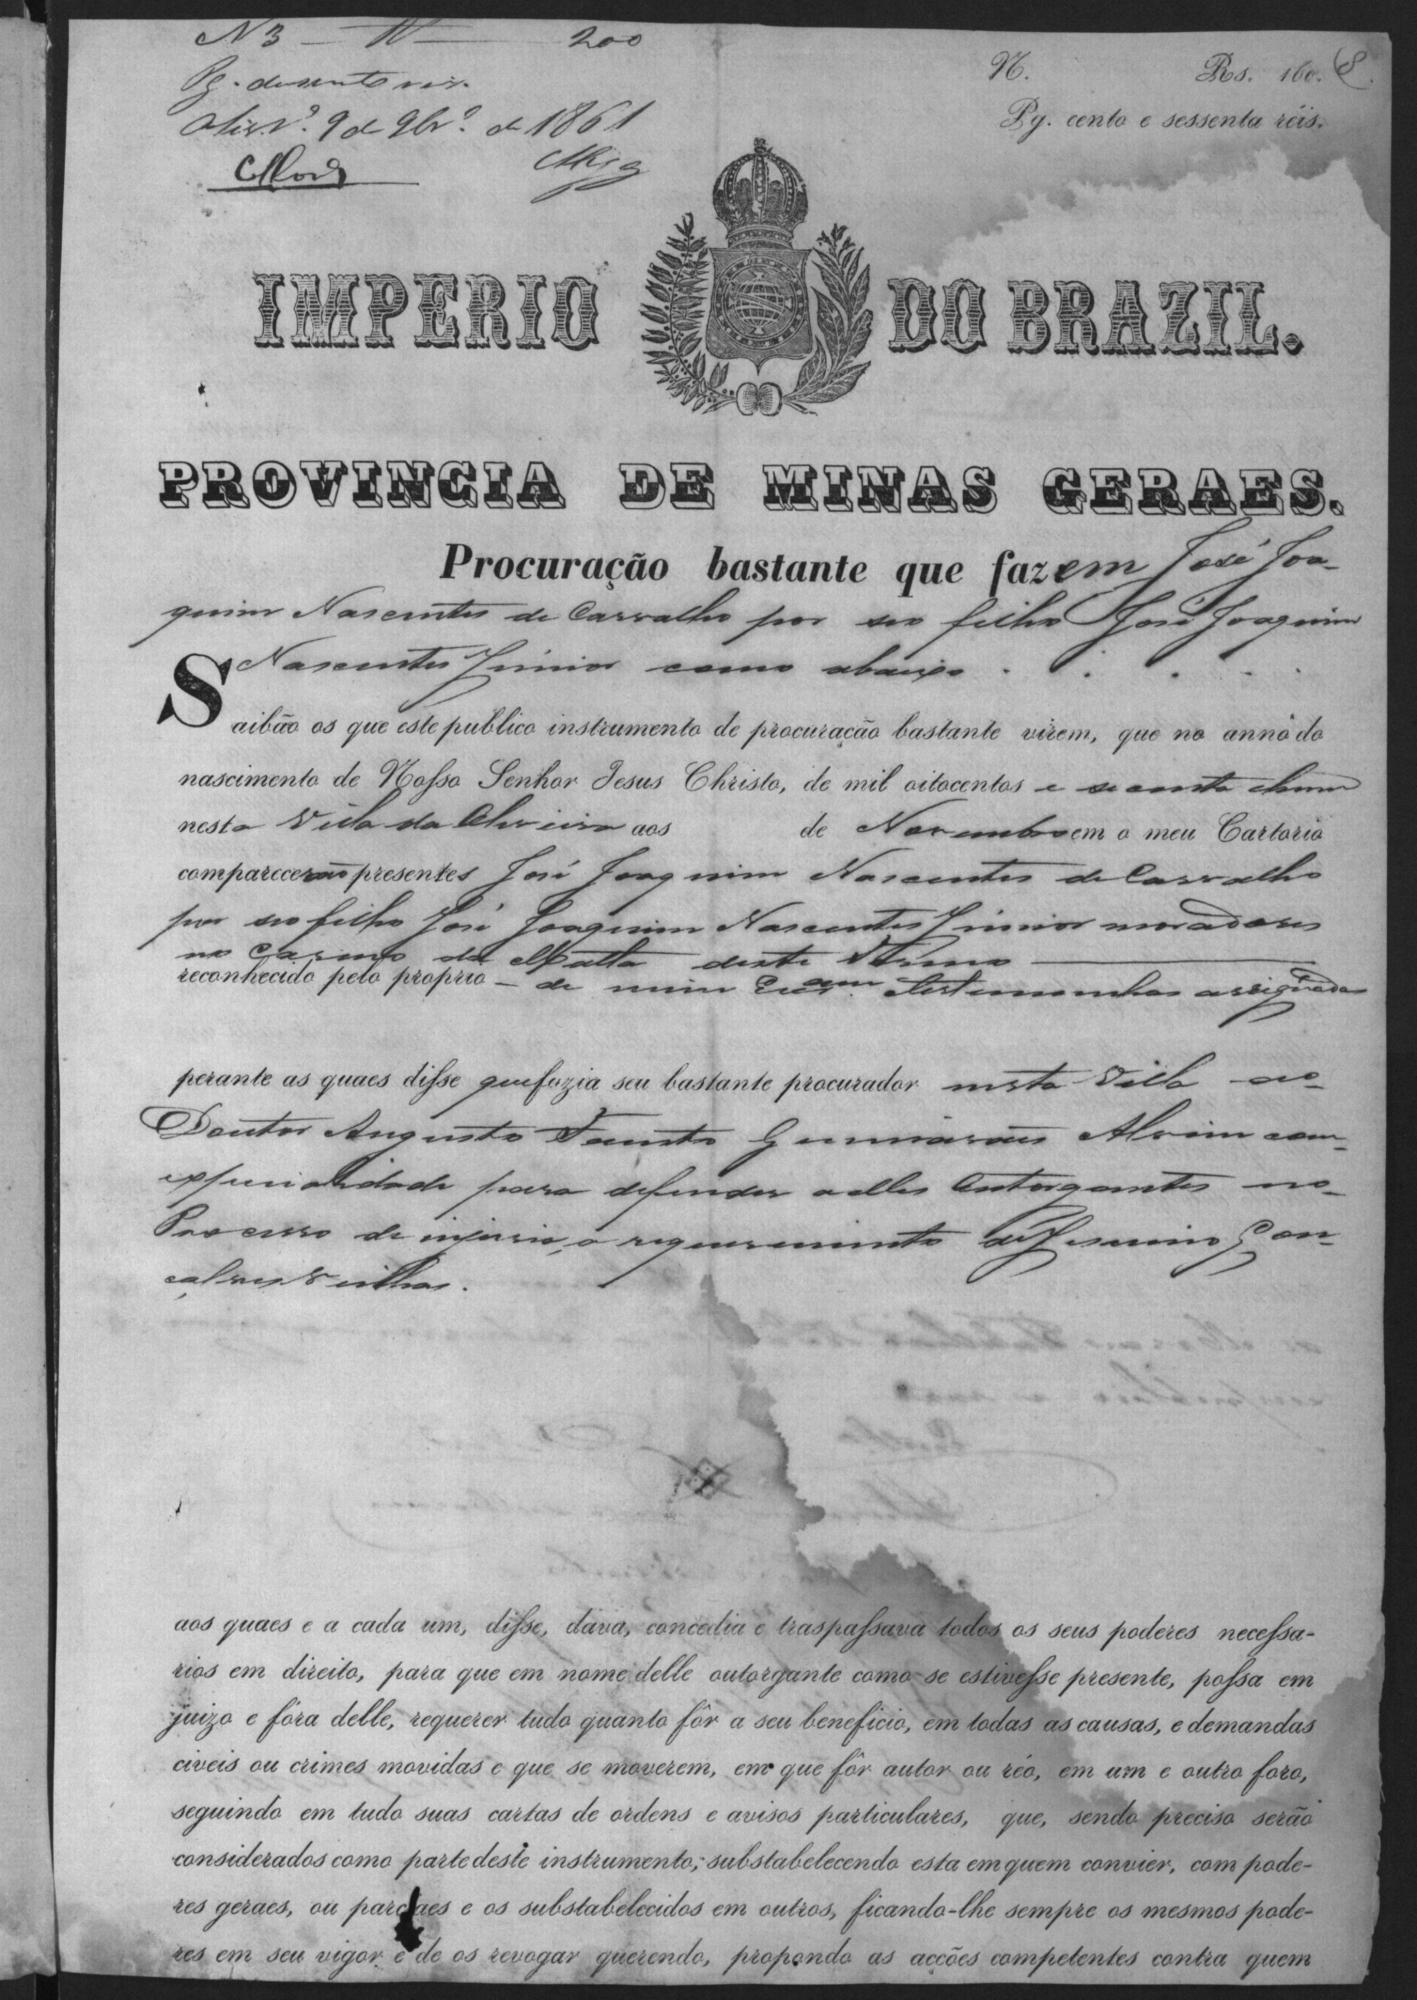 N 3 — 200
Pg. duzentos reis.
Olivrª. 9 de 9brº. de 1861
N. Rs. 160. 8.
Pg. cento e sessenta réis.
IMPERIO DO BRAZIL.
PROVINCIA DE MINAS GERAES.
Procuração bastante que fazem José Joa-
quim Nascentes de Carvalho por seo filho José Joaquim
Nascentes Júnior como abaixo . . . . .
Saibão os que este publico instrumento de procuração bastante virem, que no anno do
nascimento de Nosso Senhor Jesus Christo, de mil oitocentos e secenta e hum
nesta Villa da Oliveira aos de Novembro em o meu Cartorio
comparecerão presentes José Joaquim Nascentes de Carvalho
por seo filho José Joaquim Nascentes Júnior moradores
no Carmo da Matta deste Termo
reconhecido pelo proprio – de mim Escram. testemunhas assignadas
perante as quaes disse que fazia seu bastante procurador nesta Villa ao
Doutor Augusto Fausto Guimarães Alvim com
especialidade para defender a elles Outorgantes no
Processo de injuria, a requerimento de Jesuino Gon-
çalves Veilhas.
aos quaes e a cada um, disse, dava, concedia e traspassava todos os seus poderes necessa-
rios em direito, para que em nome delle outorgante como se estivesse presente, possa em
juizo e fóra delle, requerer tudo quanto fôr a seu beneficio, em todas as causas, e demandas
civeis ou crimes movidas e que se moverem, em que fôr autor ou réo, em um e outro foro,
seguindo em tudo suas cartas de ordens e avisos particulares, que, sendo preciso serão
considerados como parte deste instrumento; substabelecendo esta em quem convier, com pode-
res geraes, ou parciaes e os substabelecidos em outros, ficando-lhe sempre os mesmos pode-
res em seu vigor e de os revogar querendo, propondo as acções competentes contra quem